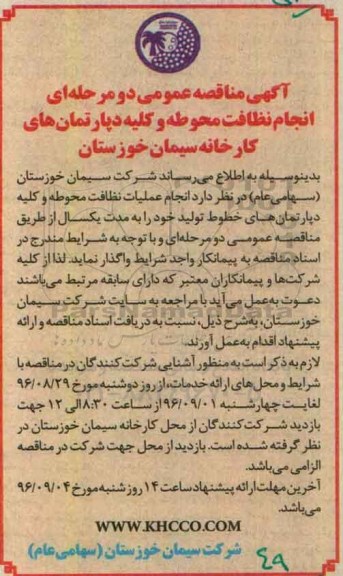 آگهی مناقصه عمومی دو مرحله‌ای
انجام نظافت محوطه و کلیه دپارتمان‌های
کارخانه سیمان خوزستان
بدینوسیله به اطلاع می‌رساند شرکت سیمان خوزستان
(سهامی عام) در نظر دارد انجام عملیات نظافت محوطه و کلیه
دپارتمان‌های خطوط تولید خود را به مدت یکسال از طریق
مناقصه عمومی دو مرحله‌ای و با توجه به شرایط مندرج در
اسناد مناقصه به پیمانکار واجد شرایط واگذار نماید. لذا از کلیه
شرکت‌ها و پیمانکاران معتبر که دارای سابقه مرتبط می‌باشند
دعوت به‌عمل می‌آید با مراجعه به سایت شرکت سیمان
خوزستان، به‌شرح ذیل، نسبت به دریافت اسناد مناقصه و ارائه
پیشنهاد اقدام به‌عمل آورند.
لازم به ذکر است به منظور آشنایی شرکت‌کنندگان در مناقصه با
شرایط و محل‌های ارائه خدمات، از روز دوشنبه مورخ ۹۶/۰۸/۲۹
لغایت چهارشنبه ۹۶/۰۹/۰۱ از ساعت ۸:۳۰ الی ۱۲ جهت
بازدید شرکت‌کنندگان از محل کارخانه سیمان خوزستان در
نظر گرفته شده است. بازدید از محل جهت شرکت در مناقصه
الزامی می‌باشد.
آخرین مهلت ارائه پیشنهاد ساعت ۱۴ روز شنبه مورخ ۹۶/۰۹/۰۴
می‌باشد.
WWW.KHCCO.COM
شرکت سیمان خوزستان (سهامی عام)
۴۹